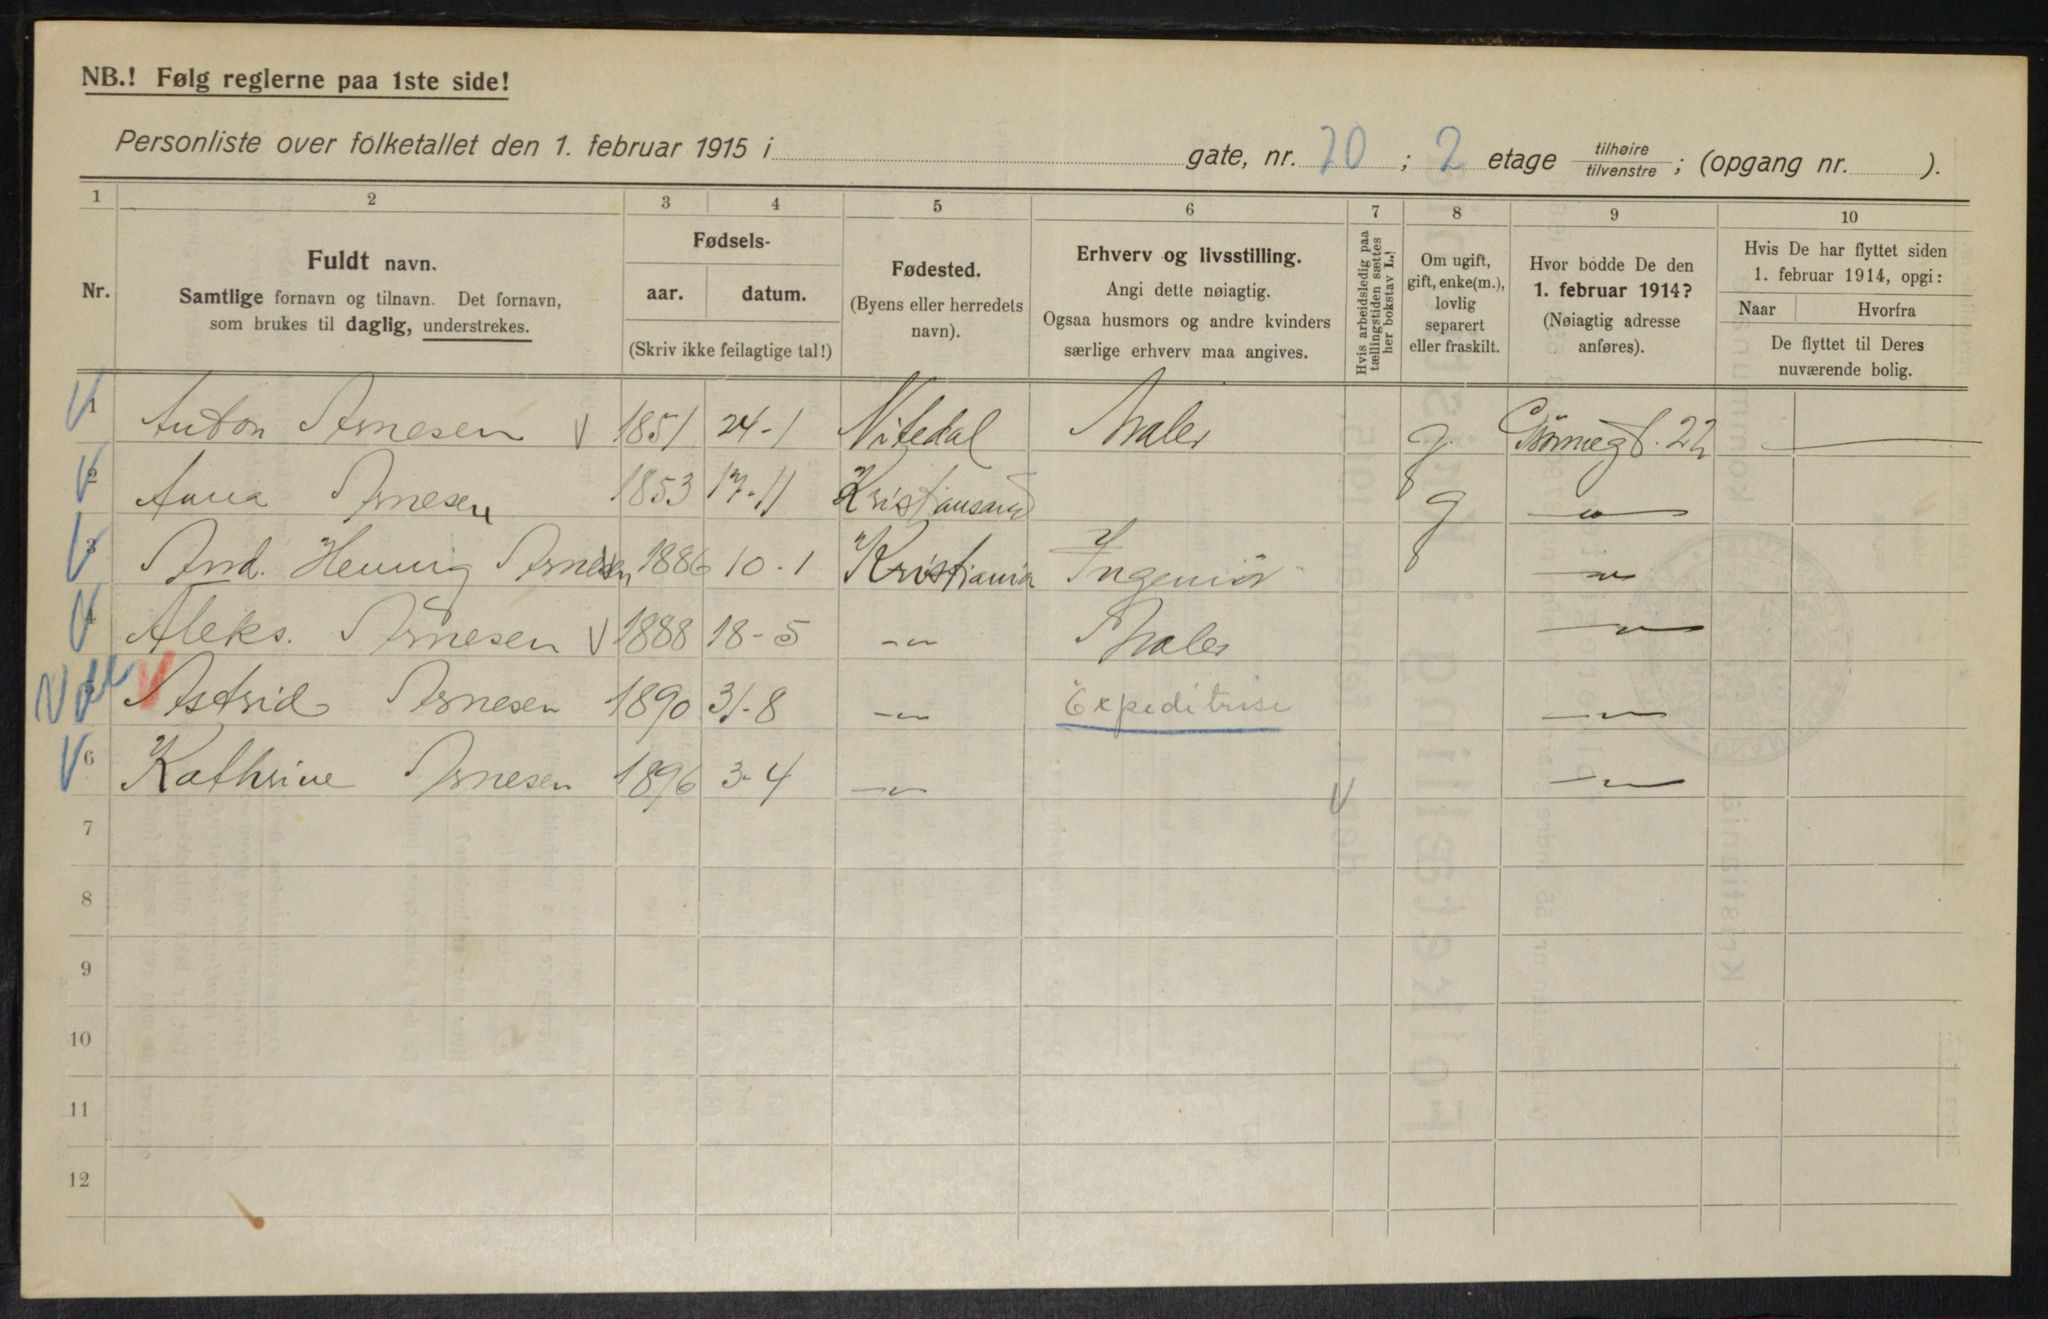 NB.! Følg reglerne paa 1ste side!
Personliste over folketallet den 1. februar 1915 i gate, nr. 20 ; 2 etage tilhøire / tilvenstre ; (opgang nr. ).
1 2 3 4 5 6 7 8 9 10
Nr.
Fuldt navn.
Samtlige fornavn og tilnavn. Det fornavn,
som brukes til daglig, understrekes.
Fødsels-
aar. datum.
(Skriv ikke feilagtige tal!)
Fødested.
(Byens eller herredets
navn).
Erhverv og livsstilling.
Angi dette nøiagtig.
Ogsaa husmors og andre kvinders
særlige erhverv maa angives.
Hvis arbeidsledig paa
tællingstiden sættes
her bokstav L.!
Om ugift,
gift, enke(m.),
lovlig
separert
eller fraskilt.
Hvor bodde De den
1. februar 1914?
(Nøiagtig adresse
anføres).
Hvis De har flyttet siden
1. februar 1914, opgi:
Naar Hvorfra
De flyttet til Deres
nuværende bolig.
1 Anton Arnesen 1851 24-1 Nitedal Maler g. 22
2 Anna Arnesen 1853 17-11 Kristiansand g - " -
3 Arnd. Hennig Arnesen 1886 10-1 Kristiania Ingeniör - " -
4 Aleks. Arnesen 1888 18-5 - " - Maler - " -
5 Astrid Arnesen 1890 31-8 - " - Expeditrise - " -
6 Kathrine Arnesen 1896 3-4 - " - - " -
7
8
9
10
11
12